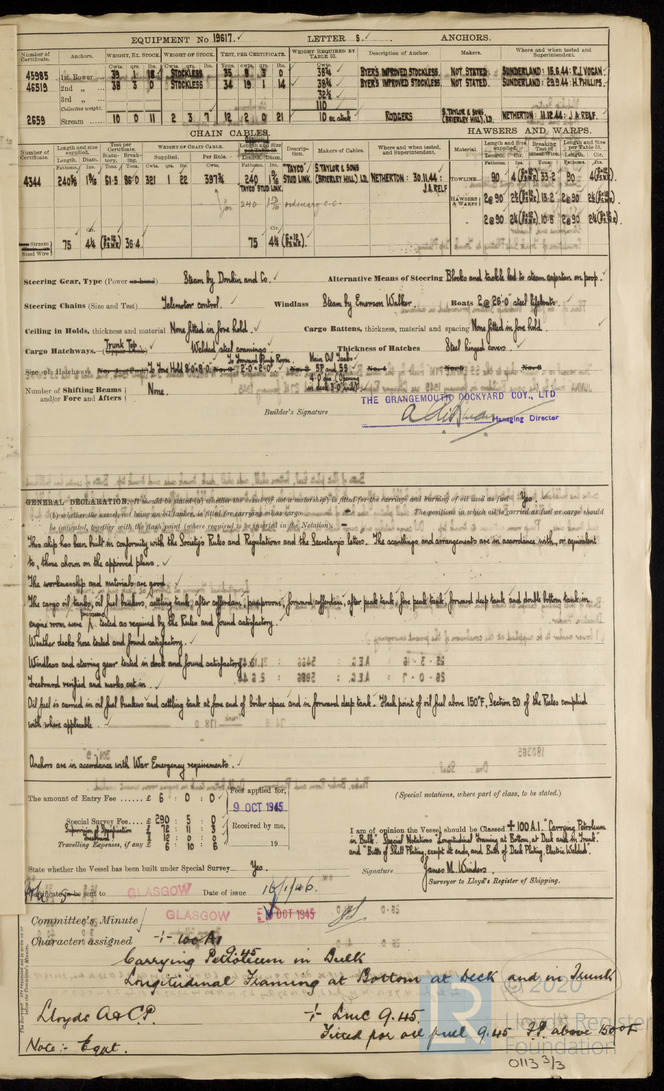 EQUIPMENT No 19617. LETTER S. ANCHORS.
Number of Certificate. Anchors. WEIGHT, EX. STOCK. WEIGHT OF STOCK. TEST, PER CERTIFICATE. WEIGHT REQUIRED BY TABLE 53. Description of Anchor. Makers. Where and when tested and Superintendent.
45985 1st Bower 39 1 18 STOCKLESS 35 8 3 0 38¾ BYER'S IMPROVED STOCKLESS NOT STATED. SUNDERLAND: 15.6.44: R.J. VOGAN.
46519 2nd „ 38 3 0 STOCKLESS 34 19 1 14 38¾ BYER'S IMPROVED STOCKLESS. NOT STATED. SUNDERLAND: 29.9.44: H. PHILLIPS.
3rd „ 32½
Collective weight. 110
2659 Stream 10 0 11 2 3 7 12 2 0 21 10 ex stock RODGERS S. TAYLOR & SONS (BRIERLEY HILL), LD. NETHERTON: 11.12.44: J.A. RELF.
CHAIN CABLES. HAWSERS AND WARPS.
Number of Certificate. Length and size supplied. Test per Certificate. WEIGHT OF CHAIN CABLE. Description. Makers of Cables. Where and when tested, and Superintendent. Material. Length and Size supplied. Breaking Test of Steel Wire. Length and Size per Table 53.
4344 240⅝ 1⅝ 61·5 86·0 321 1 22 397¾ 240 TAYCO STUD LINK. S. TAYLOR & SONS (BRIERLEY HILL) LD. NETHERTON: 30.11.44: J.A. RELF TOWLINE 90
HAWSERS & WARPS 2@90
2@90
Stream Steel Wire 75 4¼ 36·4 75 4¼
Steering Gear, Type (Power or hand) Steam by Donkin and Co. Alternative Means of Steering Blocks and tackle led to steam capstan on poop.
Steering Chains (Size and Test) Telemotor control. Windlass Steam by Emerson Walker. Boats 2@26·0 steel lifeboats
Ceiling in Holds, thickness and material None fitted in fore hold. Cargo Battens, thickness, material and spacing None fitted in fore hold.
Cargo Hatchways. Trunk Top. Welded steel coamings Thickness of Hatches Steel hinged covers
Size of Hatchways To Fore Hold To Forward Pump Room Main Oil Tanks
Number of Shifting Beams and/or Fore and Afters None.
Builder's Signature THE GRANGEMOUTH DOCKYARD COY., LTD.
Managing Director
GENERAL DECLARATION. It should be stated (a) whether the vessel (if not a motorship) is fitted for the carriage and burning of oil used as fuel Yes.
(b) whether the vessel, not being an oil tanker, is fitted for carrying oil as cargo. The positions in which oil is carried as fuel or cargo should
be indicated, together with the flash point (where required to be inserted in the Notation).
This ship has been built in conformity with the Society's Rules and Regulations and the Secretary's letters. The scantlings and arrangements are in accordance with, or equivalent
to, those shown on the approved plans.
The workmanship and materials are good.
The cargo oil tanks, oil fuel bunkers, settling tank, after cofferdam, pumprooms, forward cofferdam, after peak tank, fore peak tank, forward deep tank and double bottom tank in
engine room were tested as required by the Rules and found satisfactory.
Weather decks hose tested and found satisfactory.
Windlass and steering gear tested in dock and found satisfactory.
Freeboard verified and marks cut in.
Oil fuel is carried in oil fuel bunkers and settling tank at fore end of boiler space and in forward deep tank. Flash point of oil fuel above 150°F, Section 20 of the Rules complied
with where applicable.
Anchors are in accordance with War Emergency requirements.
The amount of Entry Fee ...... £ 6 : 0 : 0
Fees applied for,
9 OCT 1945
Special Survey Fee.... £ 290 : 5 : 0
Supervision of Specification £ 72 : 11 : 3
Freeboard £ 12 : 0 : 0
Travelling Expenses, if any £ 6 : 10 : 6
Received by me,
19
(Special notations, where part of class, to be stated.)
I am of opinion the Vessel should be Classed +100A1. "Carrying Petroleum
in Bulk". Special Notations "Longitudinal Framing at Bottom, at Deck and in Trunk"
and "Butts of Shell Plating, except at ends, and Butts of Deck Plating Electric Welded".
State whether the Vessel has been built under Special Survey Yes.
Signature James M. Winders
Surveyor to Lloyd's Register of Shipping.
Certificate to be sent to GLASGOW Date of issue 16/1/46.
Committee's Minute GLASGOW OCT 1945
Character assigned + 100 A1 9.45
Carrying Petroleum in Bulk
Longitudinal Framing at Bottom at Deck and in Trunk
Lloyds A&CP. + LMC 9.45
Fitted for oil fuel 9.45 F.P. above 150°F
Note:- Eqpt.
© 2020
Lloyd's Register
Foundation
0113 3/3